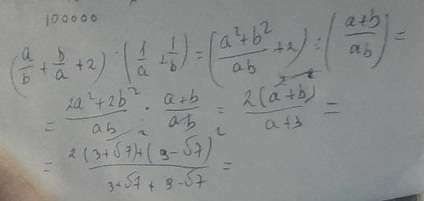 100000
(a/b + b/a + 2) : (1/a + 1/b) = ((a² + b²)/ab + 2) : ((a+b)/ab) =
= (2a² + 2b²)/ab · (a+b)/ab = 2(a+b)/(a+3) =
= 2(3+√7)+(3-√7)²/(3+√7 + 3-√7) =